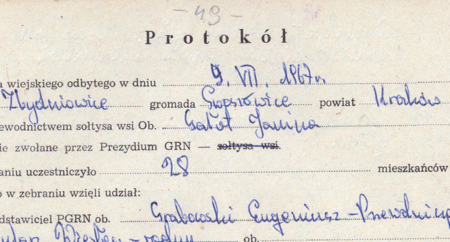 - 49 -
Protokół
a wiejskiego odbytego w dniu 9. VII. 1967r.
Zbydniowice gromada powiat Kraków
ewodnictwem sołtysa wsi Ob. Galat Janina
ie zwołane przez Prezydium GRN — sołtysa wsi.
aniu uczestniczyło 28 mieszkańców
o w zebraniu wzięli udział:
dstawiciel PGRN ob. Grabowski Eugeniusz - Przewodnicz
radny ob.